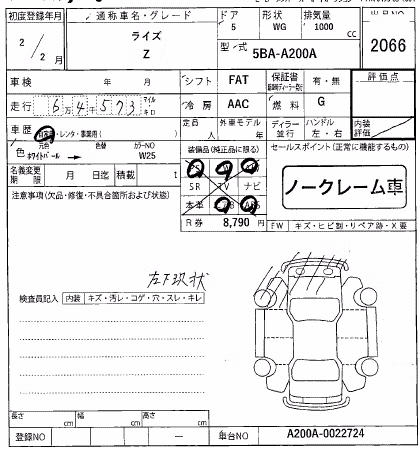 初度登録年月 通称車名・グレード ドア 形状 排気量
2/2月 ライズ 5 WG 1000 CC
Z 型式 5BA-A200A 2066
車検 年 月 シフト FAT 保証書 有・無 評価点
走行 6万4千573 マイル キロ 冷房 AAC 燃料 G
内装評価
車歴 自家用・レンタ・事業用( ) 定員 人 外車モデル 年 ディーラー 並行 ハンドル 左・右
色 元色 ホワイトパール→ 色替 カラーNO W25 装備品(純正品に限る) セールスポイント(正常に機能するもの)
名義変更期限 月 日迄 積載 t
SR TV ナビ
ノークレーム車
注意事項(欠品・修復・不具合箇所および状態) 本革
R券 8,790 円
FW キズ・ヒビ割・リペア跡・X要
検査員記入 内装 キズ・汚レ・コゲ・穴・スレ・キレ
長さ cm 幅 cm 高さ cm
登録NO — 車台NO A200A-0022724